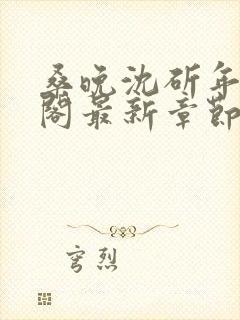 桑晚沈斫年
阁最新章節
穹烈